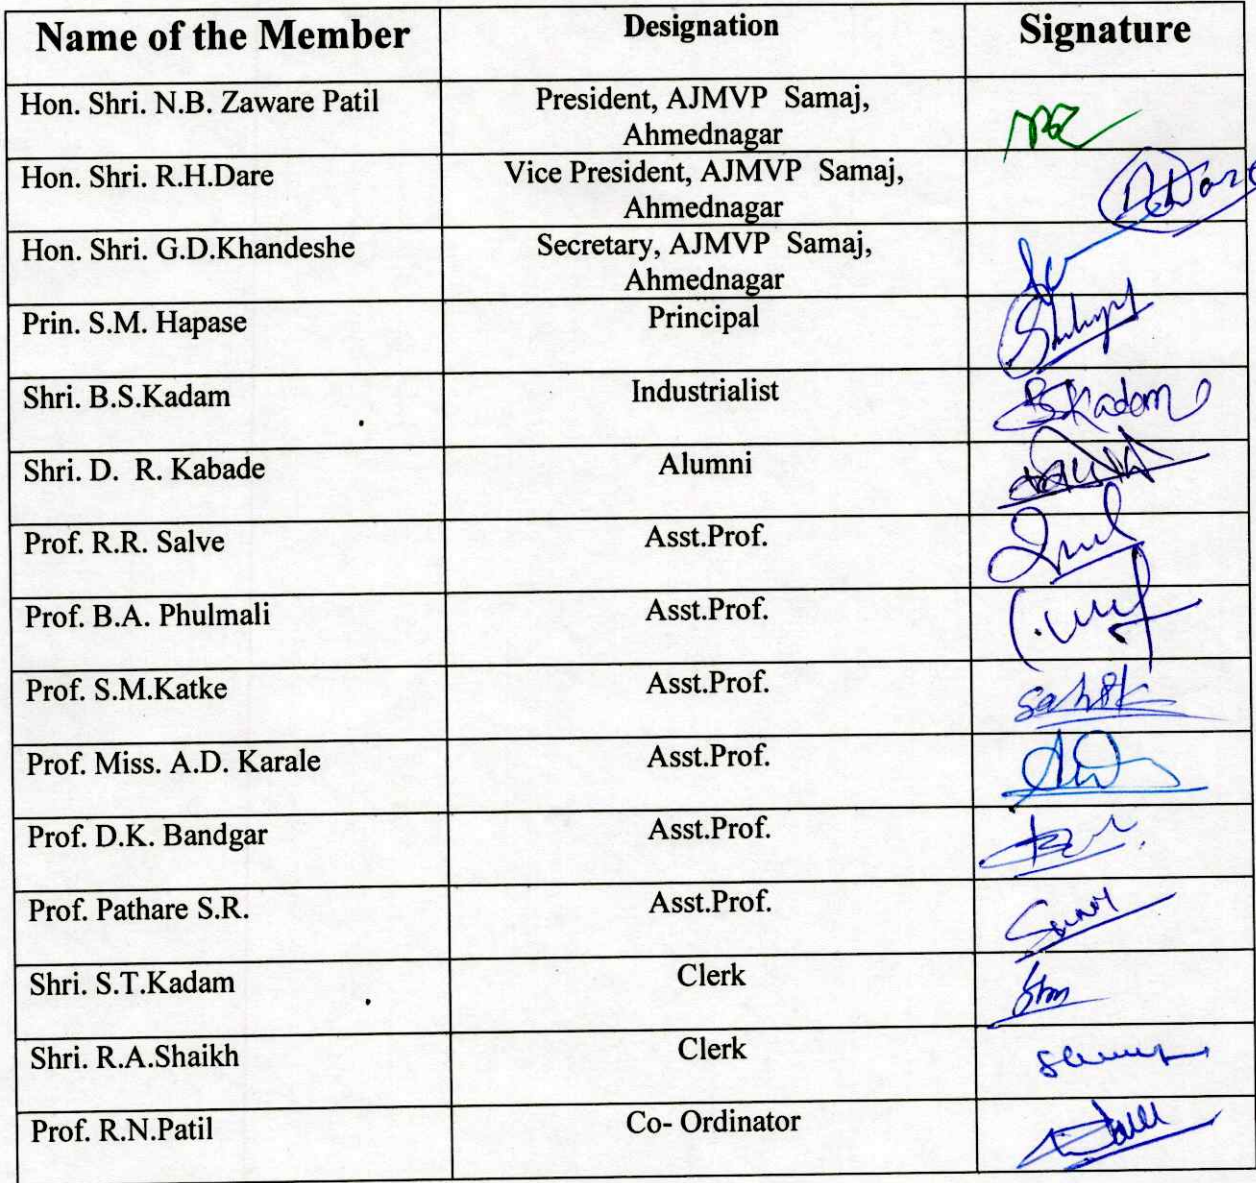 Name of the Member Designation Signature
Hon. Shri. N.B. Zaware Patil President, AJMVP Samaj,
Ahmednagar
Hon. Shri. R.H.Dare Vice President, AJMVP Samaj,
Ahmednagar
Hon. Shri. G.D.Khandeshe Secretary, AJMVP Samaj,
Ahmednagar
Prin. S.M. Hapase Principal
Shri. B.S.Kadam Industrialist BSKadam
Shri. D. R. Kabade Alumni
Prof. R.R. Salve Asst.Prof.
Prof. B.A. Phulmali Asst.Prof.
Prof. S.M.Katke Asst.Prof.
Prof. Miss. A.D. Karale Asst.Prof.
Prof. D.K. Bandgar Asst.Prof.
Prof. Pathare S.R. Asst.Prof.
Shri. S.T.Kadam Clerk
Shri. R.A.Shaikh Clerk
Prof. R.N.Patil Co- Ordinator